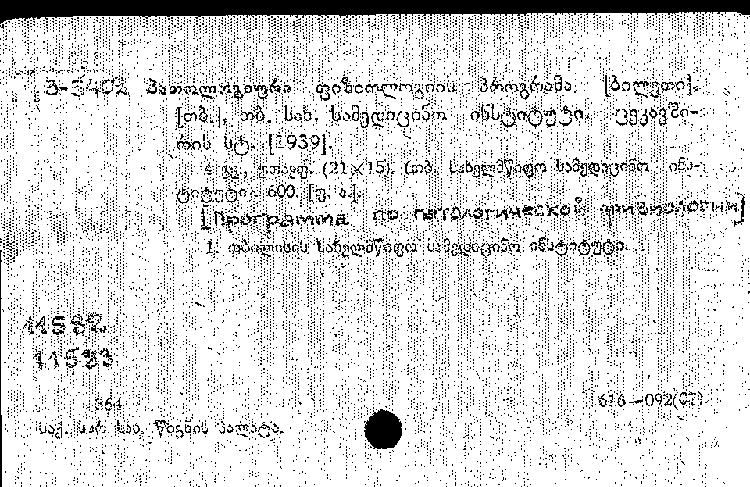 პ-3402 პათოლოგიური ფიზიოლოგიის პროგრამა. [ბილეთი].
[თბ.], თბ. სახ. სამედიცინო ინსტიტუტი. ცეკავში-
რის სტ. [1939].
4 გვ., უთავფ. (21×15). (თბ. სახელმწიფო სამედიცინო ინს-
ტიტუტი). 600. [უ. ფ.].
[Программа по патологической физиологии]
1. თბილისის სახელმწიფო სამედიცინო ინსტიტუტი
11582
11583
364 616—092(07)
საქ. სსრ სახ. წიგნის პალატა.